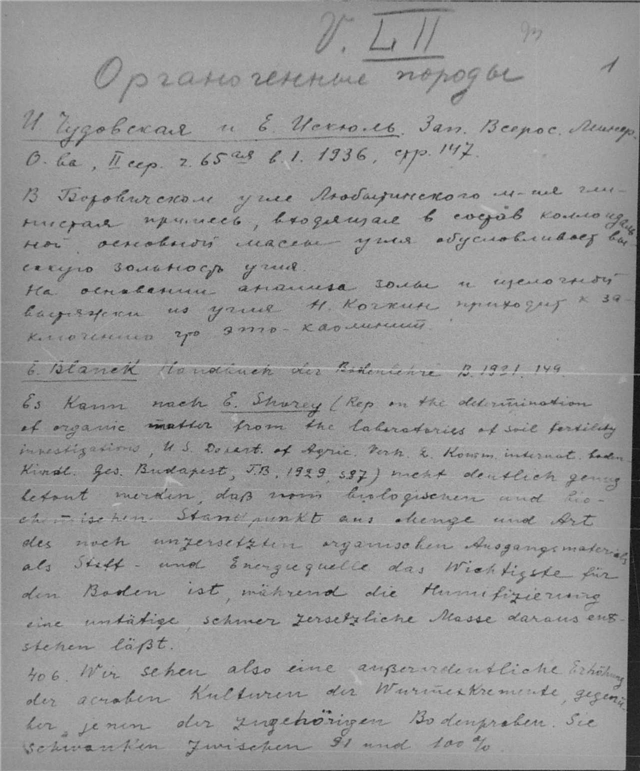 V. L II
Органогенные породы
1
И Чудовская и Е. Искюль. Зап. Всерос. Минер.
О-ва, II сер. ч. 65ая в. 1. 1936, стр. 147.
В Боровичском угле Любытинского м-ия гли-
нистая примесь, входящая в состав коллоидаль
ной основной массы угля обусловливает вы-
сокую зольность угля.
На основании анализа золы и щелочной
вытяжки из угля Н. Кочкин приходит к за-
ключению что это-каолинит
E. Blanck Handbuch der Bodenlehre B. 1921. 149
Es kann nach E. Shorey (Rep. on the determination
of organic matter from the laboratories of soil fertility
investigations, U.S. Depart. of Agric. Verh. 2. Komm. internat. boden
kundl. Ges. Budapest, T.B, 1929, 587) nicht deutlich genug
betont werden, daß vom biologischen und bio-
chemischen Standpunkt aus Menge und Art
des noch unzersetzten organischen Ausgangsmaterials
als Stoff- und Energiequelle das Wichtigste für
den Boden ist, während die Humifizierung
eine untätige, schwer zersetzliche Masse daraus ent-
stehen läßt.
406. Wir sehen also eine außerordentliche Erhöhung
der aeroben Kulturen der Wurmexkremente, gegenü-
ber jenen der zugehörigen Bodenproben. Sie
schwanken zwischen 91 und 100%.